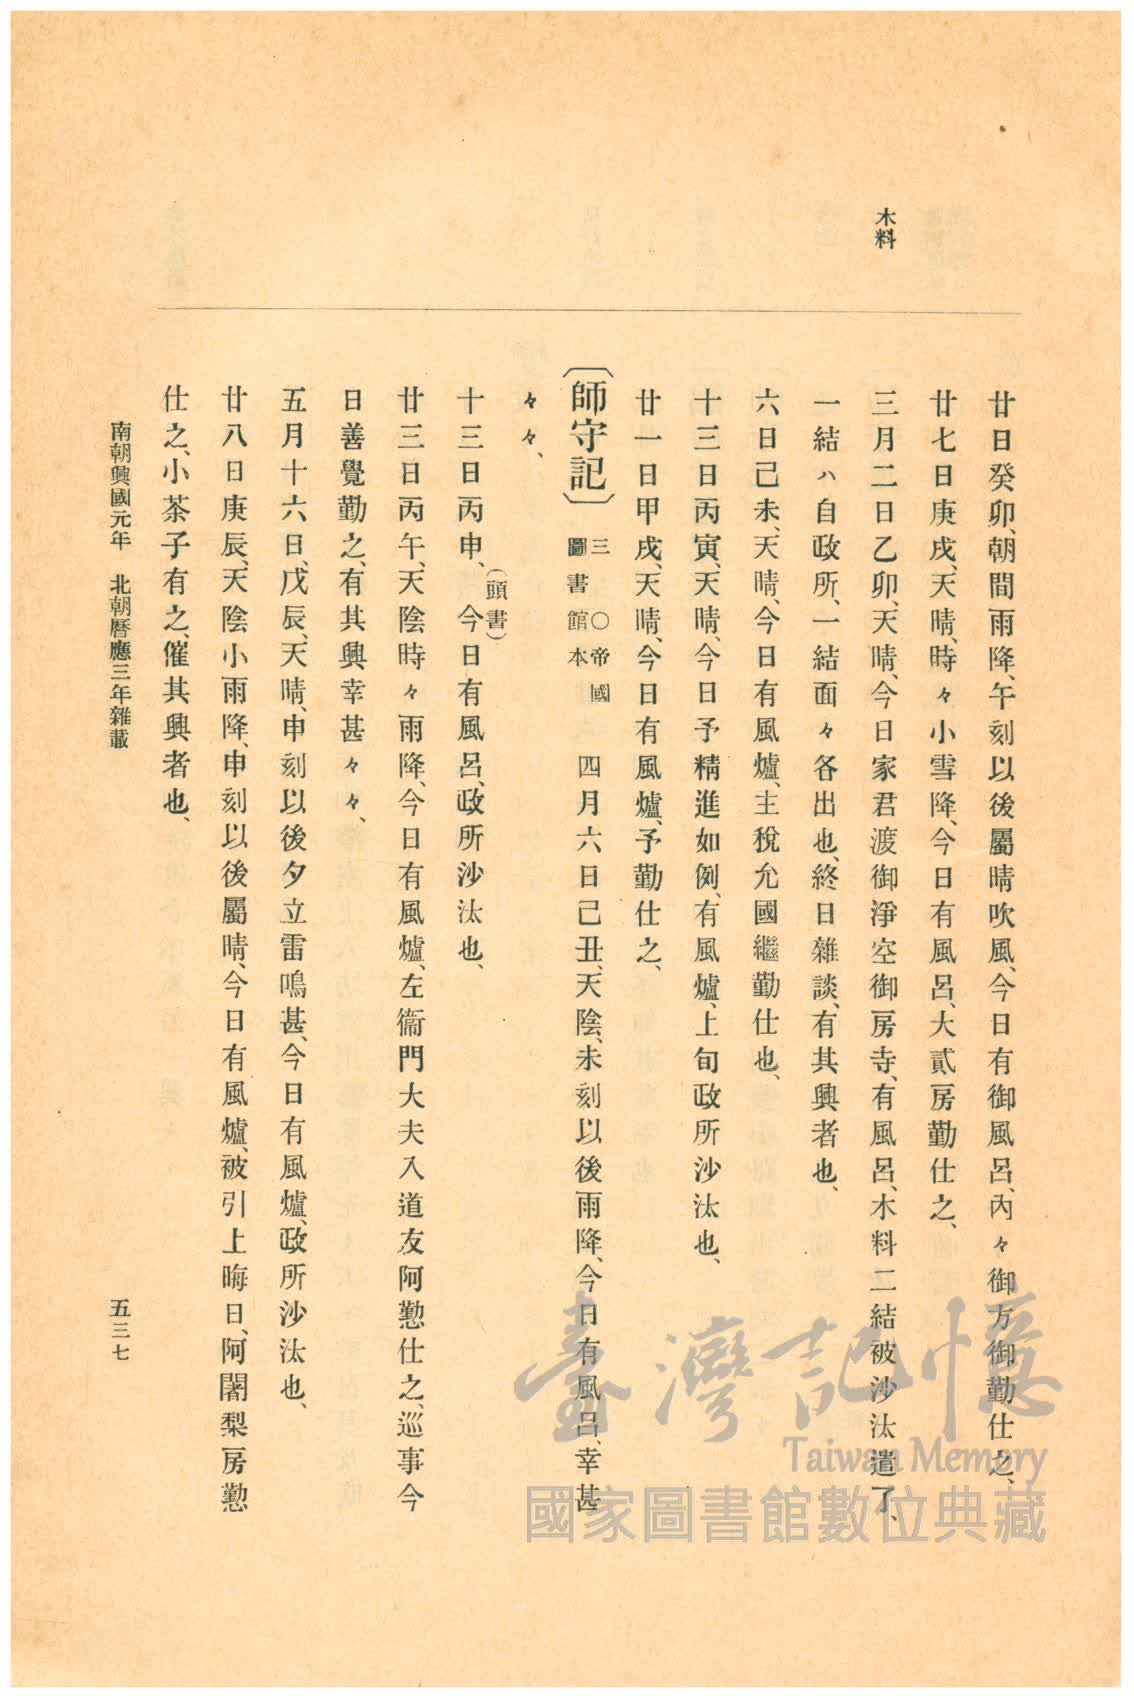 木料
廿日癸卯、朝間雨降、午刻以後屬晴吹風、今日有御風呂、內々御方御勤仕之、
廿七日庚戌、天晴、時々小雪降、今日有風呂、大貳房勤仕之、
三月二日乙卯、天晴、今日家君渡御淨空御房寺、有風呂、木料二結被沙汰遣了、
一結ハ自政所、一結面々各出也、終日雜談、有其興者也、
六日己未、天晴、今日有風爐、主稅允國繼勤仕也、
十三日丙寅、天晴、今日予精進如例、有風爐、上旬政所沙汰也、
廿一日甲戌、天晴、今日有風爐、予勤仕之、
〔師守記〕三〇帝國圖書館本 四月六日己丑、天陰、未刻以後雨降、今日有風呂、幸甚
々々、
十三日丙申、(頭書)今日有風呂、政所沙汰也、
廿三日丙午、天陰時々雨降、今日有風爐、左衞門大夫入道友阿懃仕之、巡事今
日善覺勤之、有其興幸甚々々、
五月十六日、戊辰、天晴、申刻以後夕立雷鳴甚、今日有風爐、政所沙汰也、
廿八日庚辰、天陰小雨降、申刻以後屬晴、今日有風爐、被引上晦日、阿闍梨房懃
仕之、小茶子有之、催其興者也、
南朝興國元年 北朝曆應三年雜載
五三七
臺灣記憶
Taiwan Memory
國家圖書館數位典藏